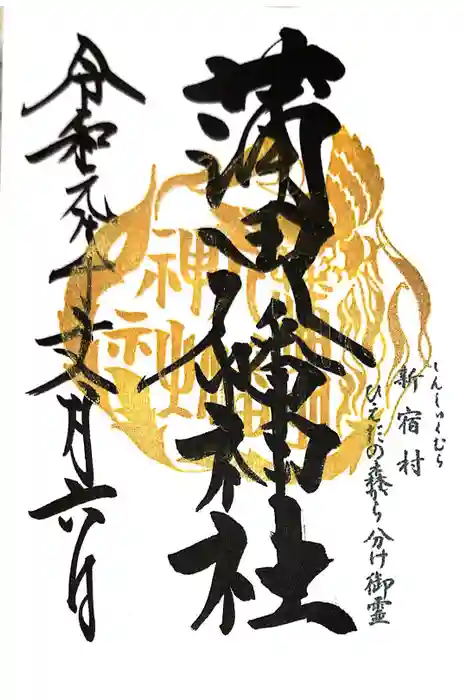 しんしゅくむら
新宿村
ひえだの森から分け御霊
蒲田八幡神社
令和元年十月六日
蒲田八幡
神社